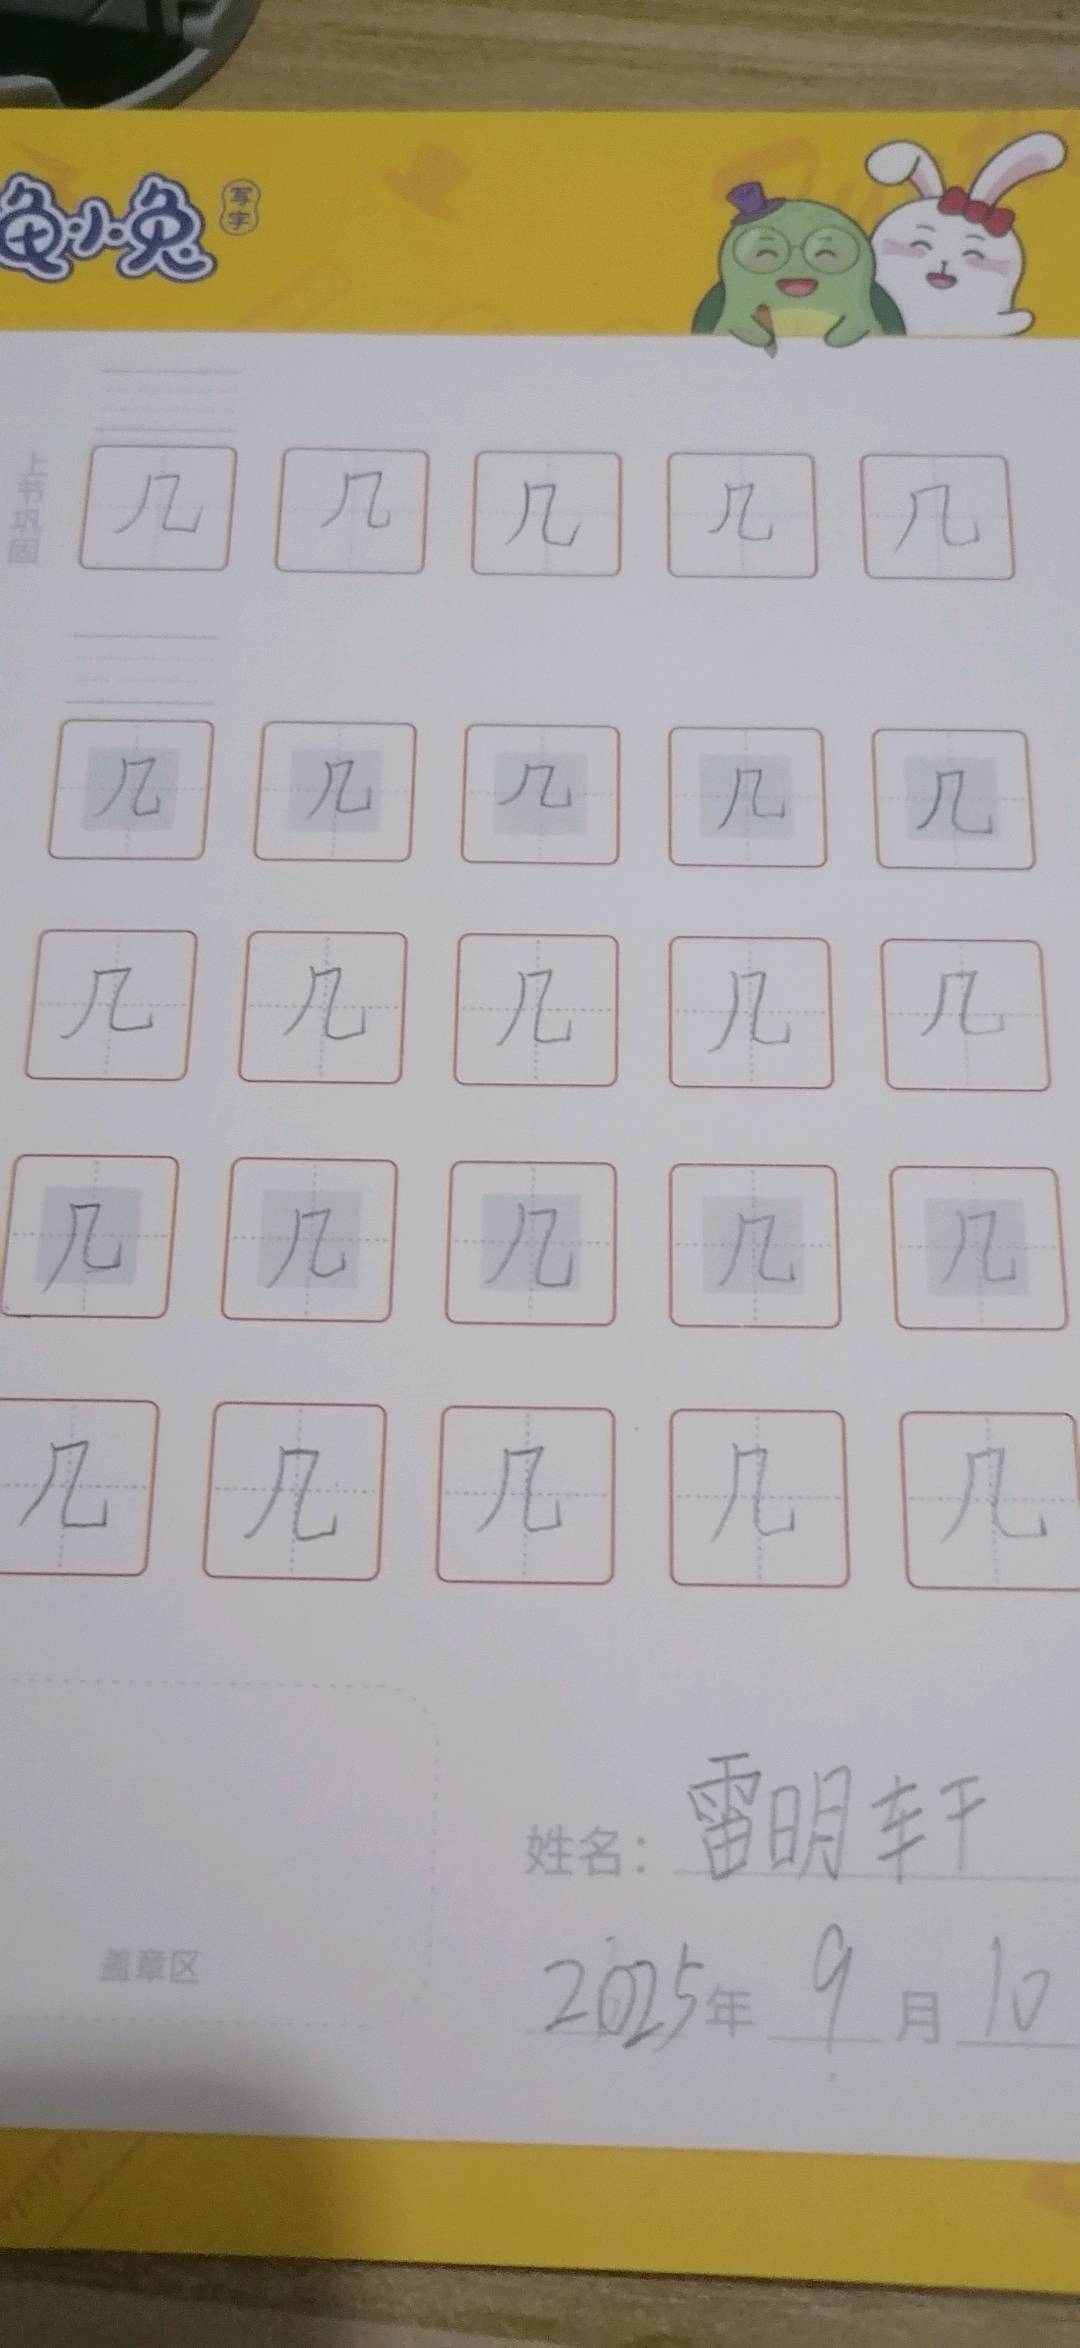 龟小兔 写字
上书巩固
几 几 几 几 几
几 几 几 几 几
几 几 几 几 几
几 几 几 几 几
几 几 几 几 几
姓名: 雷明轩
盖章区
2025年 9 月 10